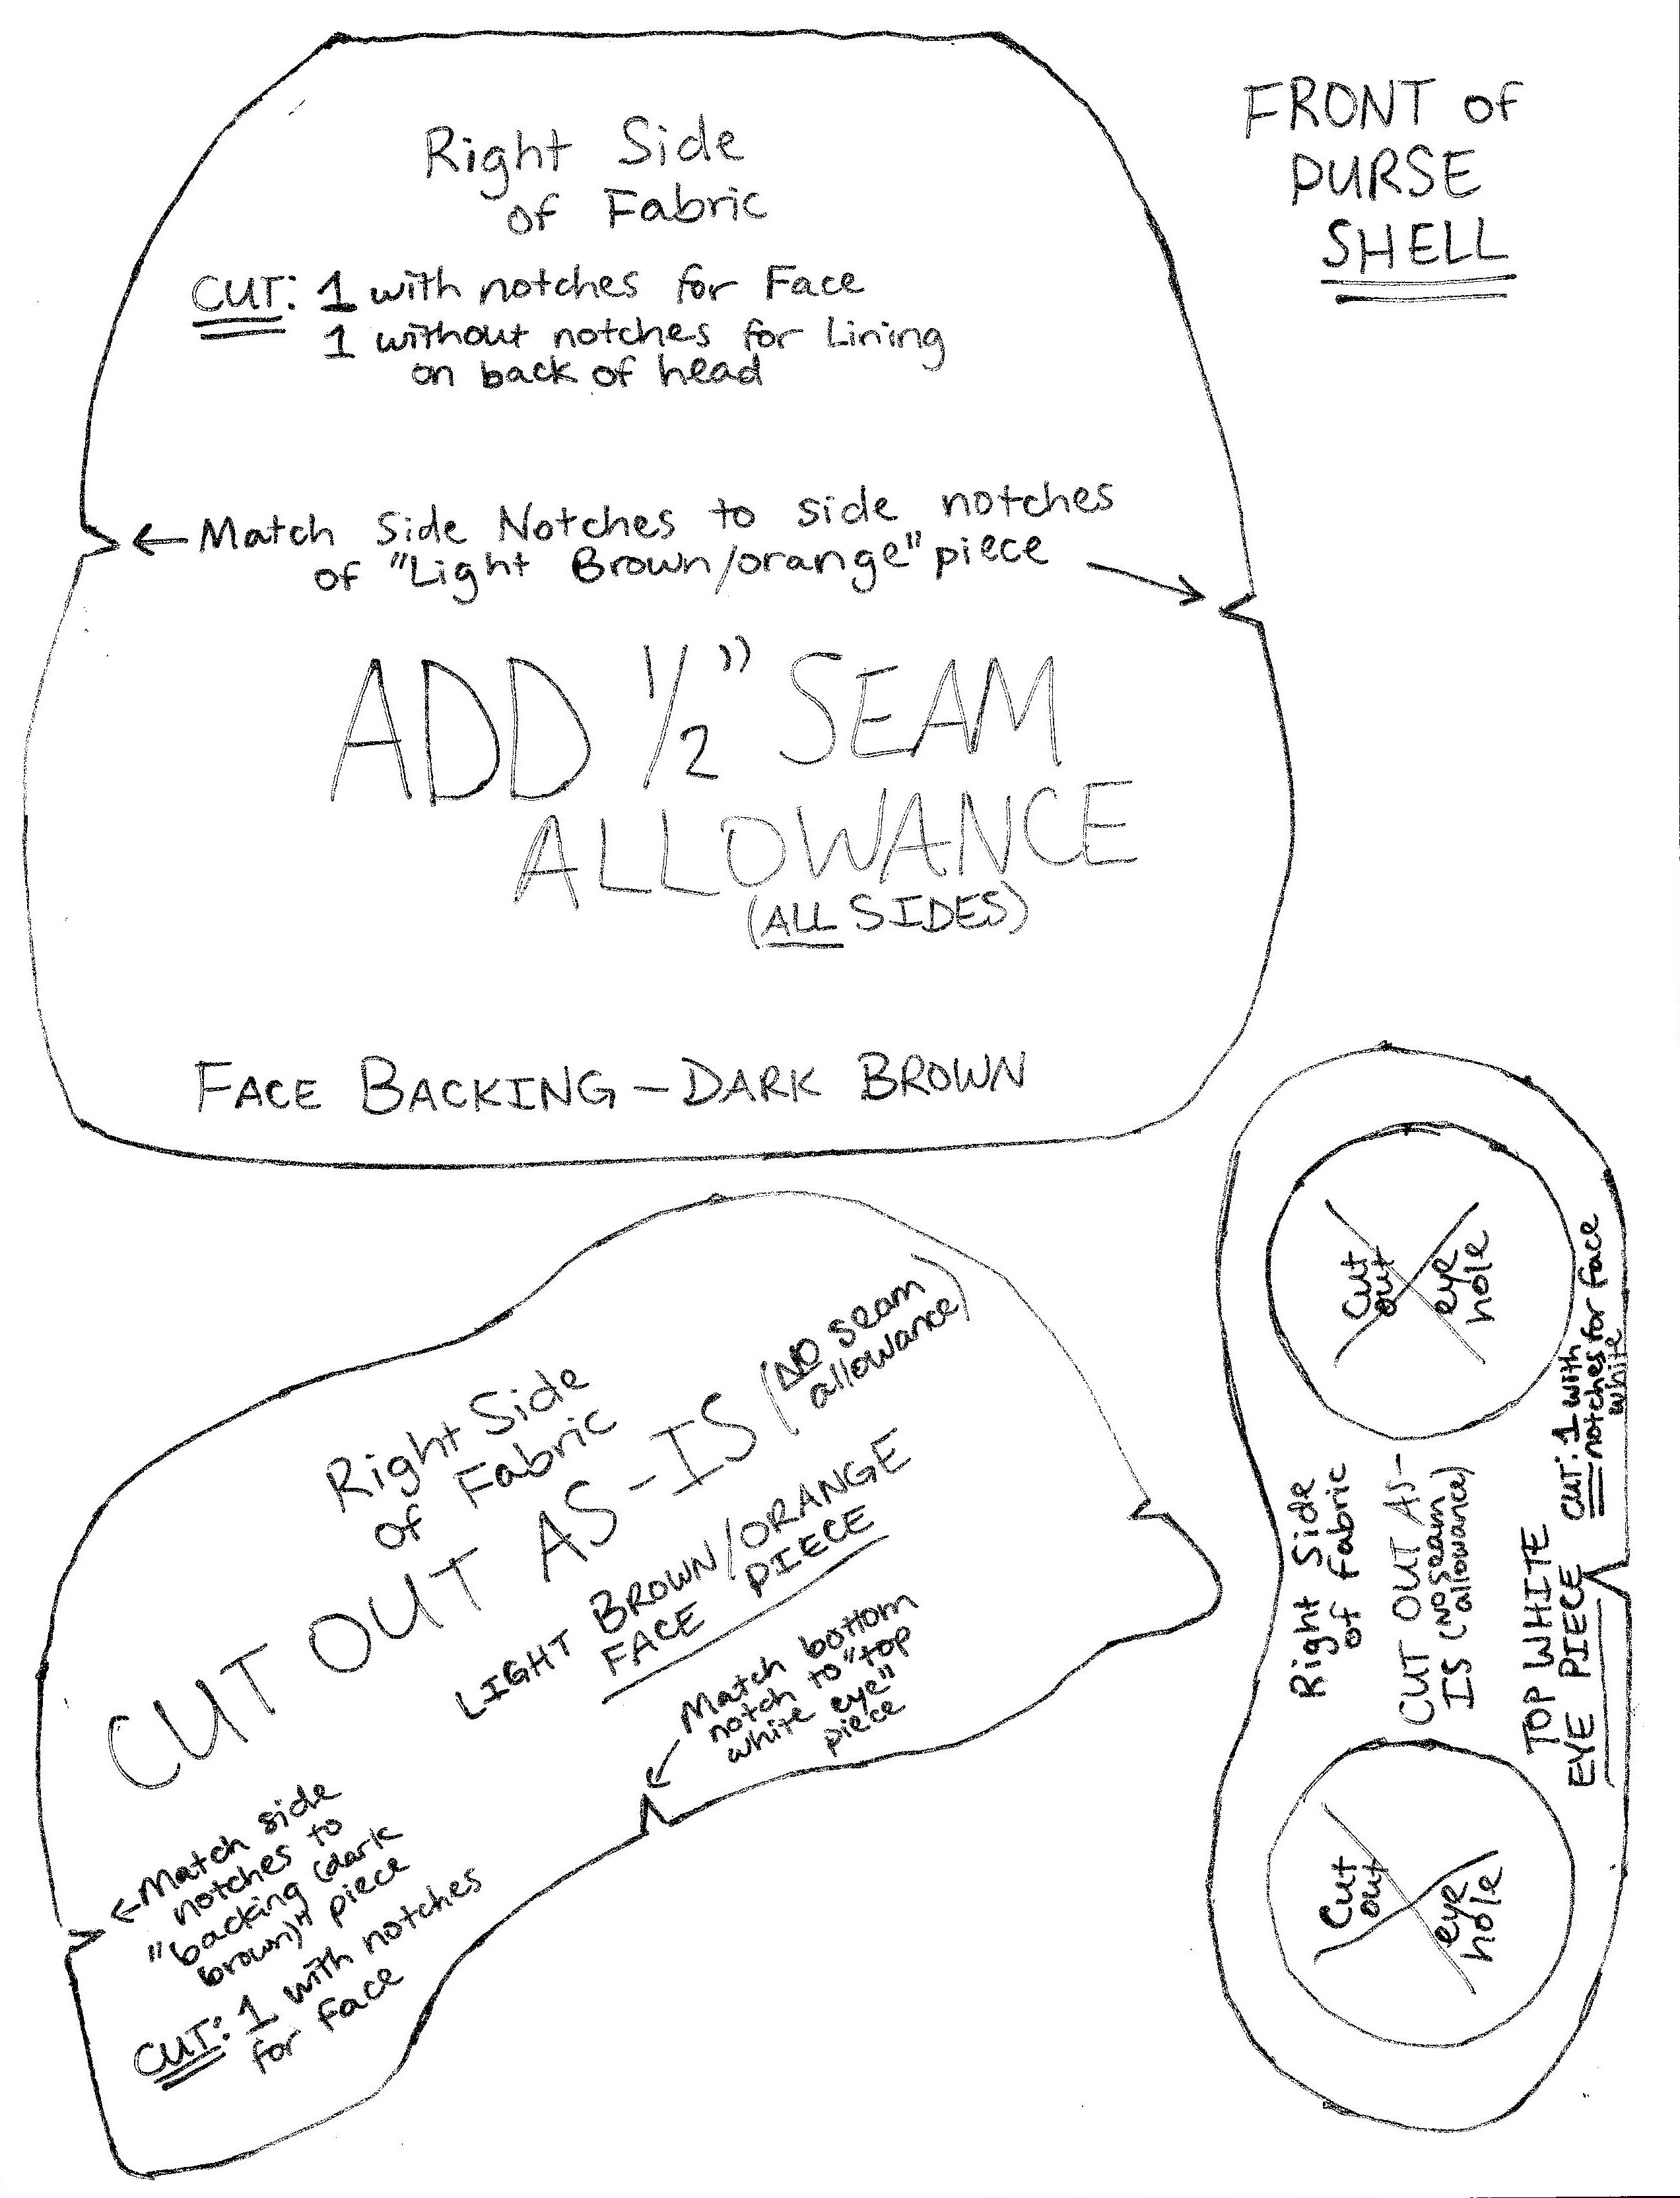 FRONT of
PURSE
SHELL
Right Side
of Fabric
CUT: 1 with notches for Face
1 without notches for Lining
on back of head
← Match Side Notches to side notches
of "Light Brown/orange" piece →
ADD 1/2" SEAM
ALLOWANCE
(ALL SIDES)
FACE BACKING - DARK BROWN
Right Side
of Fabric
CUT OUT AS-IS (NO seam
allowance)
LIGHT BROWN/ORANGE
FACE PIECE
Match bottom
notch to "top
white eye"
piece
← Match side
notches to
"backing (dark
brown)" piece
CUT: 1 with notches
for face
Cut
out
eye
hole
Right Side
of fabric
CUT OUT AS-
IS (NO seam
allowance)
TOP WHITE
EYE PIECE
CUT: 1 with
notches for face
white
Cut
out
eye
hole